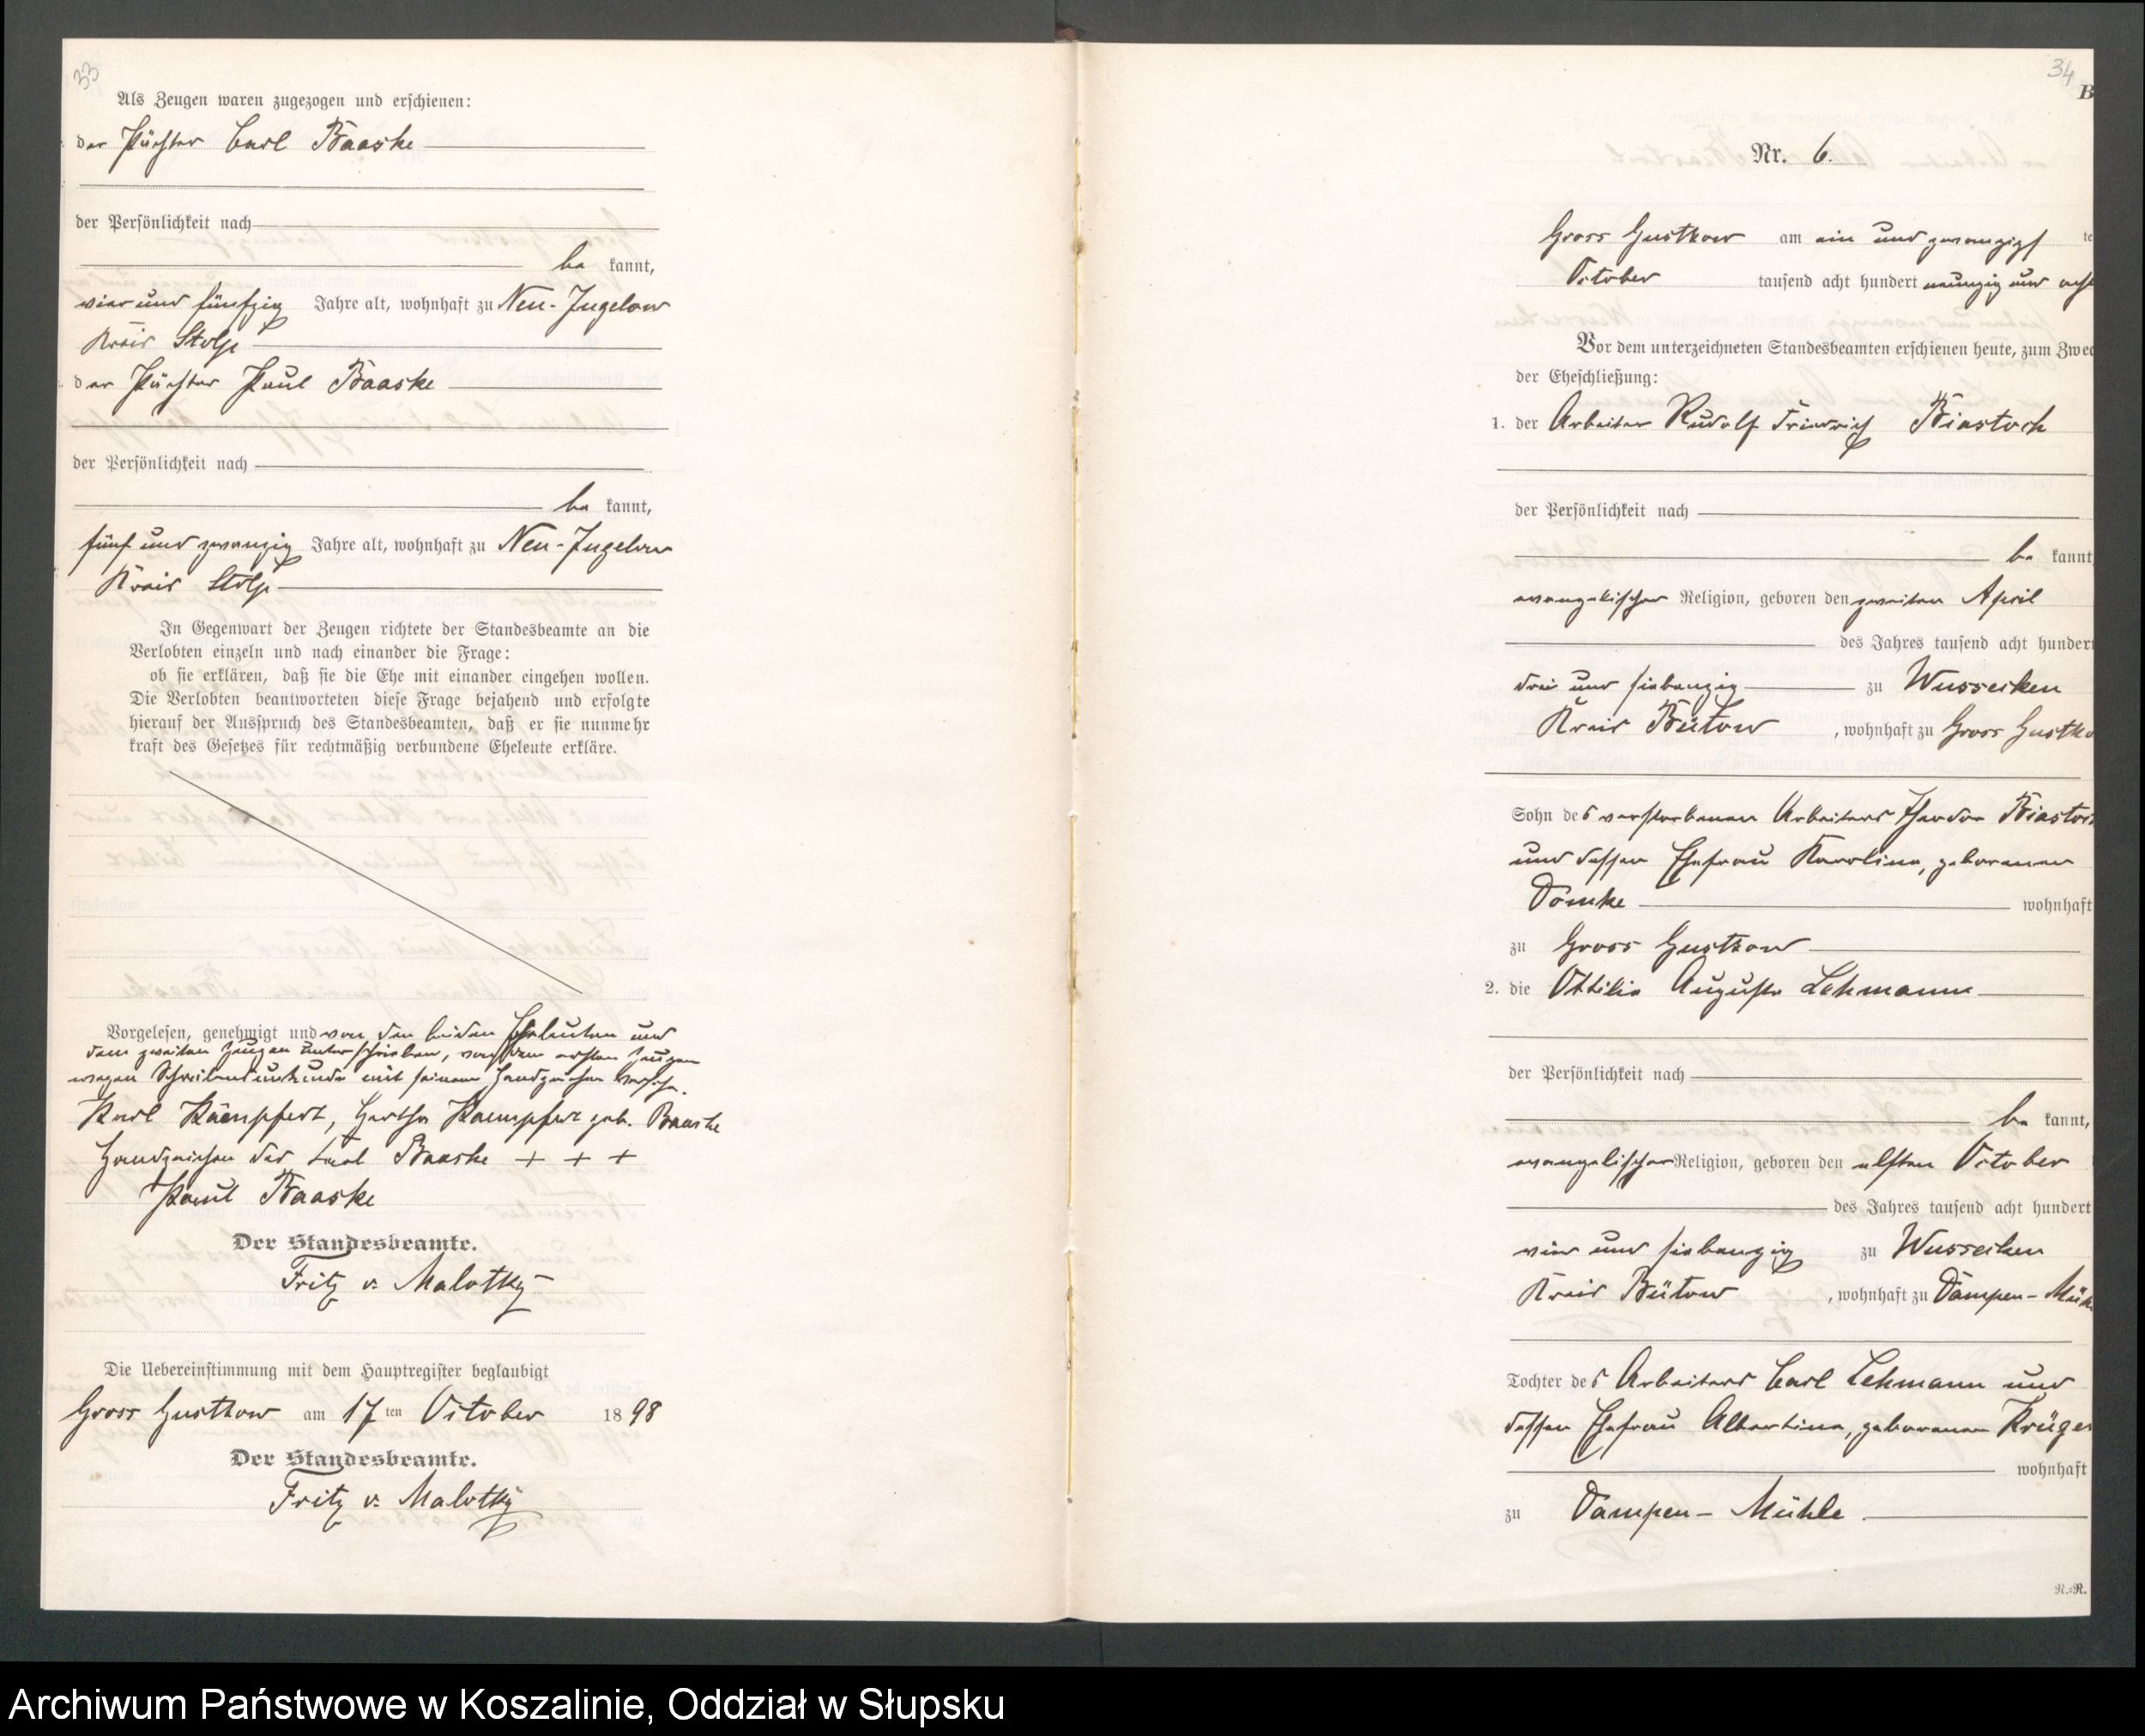 33
Als Zeugen waren zugezogen und erschienen:
der Pächter Carl Baaske
der Persönlichkeit nach
be kannt,
vier und fünfzig Jahre alt, wohnhaft zu Neu-Jugelow
Kreis Stolp
der Pächter Paul Baaske
der Persönlichkeit nach
be kannt,
fünf und zwanzig Jahre alt, wohnhaft zu Neu-Jugelow
Kreis Stolp
In Gegenwart der Zeugen richtete der Standesbeamte an die
Verlobten einzeln und nach einander die Frage:
ob sie erklären, daß sie die Ehe mit einander eingehen wollen.
Die Verlobten beantworteten diese Frage bejahend und erfolgte
hierauf der Ausspruch des Standesbeamten, daß er sie nunmehr
kraft des Gesetzes für rechtmäßig verbundene Eheleute erkläre.
Vorgelesen, genehmigt und von den beiden Eheleuten und
dem zweiten Zeugen unterschrieben, von dem ersten Zeugen
wegen Schreibensunkunde mit seinem Handzeichen versehn.
Karl Kaempfert, Hertha Kaempfert geb. Baaske
Handzeichen des Carl Baaske + + +
Paul Baaske
Der Standesbeamte.
Fritz v. Malotky
Die Uebereinstimmung mit dem Hauptregister beglaubigt
Gross Gustkow am 17 ten October 18 98
Der Standesbeamte.
Fritz v. Malotky
34
B
Nr. 6.
Gross Gustkow am ein und zwanzigs te
October tausend acht hundert neunzig und acht
Vor dem unterzeichneten Standesbeamten erschienen heute, zum Zwec
der Eheschließung:
1. der Arbeiter Rudolf Friedrich Biastoch
der Persönlichkeit nach
be kannt
evangelischer Religion, geboren den zweiten April
des Jahres tausend acht hundert
drei und siebenzig zu Wusseken
Kreis Bütow, wohnhaft zu Gross Gustko
Sohn des verstorbenen Arbeiters Theodor Biastoc
und dessen Ehefrau Karoline, geborenen
Dömke wohnhaft
zu Gross Gustkow
2. die Ottilie Auguste Lehmann
der Persönlichkeit nach
be kannt,
evangelischer Religion, geboren den elften October
des Jahres tausend acht hundert
vier und siebenzig zu Wusseken
Kreis Bütow, wohnhaft zu Dampen-Müh
Tochter des Arbeiters Carl Lehmann und
dessen Ehefrau Albertine, geborenen Krüger
wohnhaft
zu Dampen-Mühle
R.-R.
Archiwum Państwowe w Koszalinie, Oddział w Słupsku